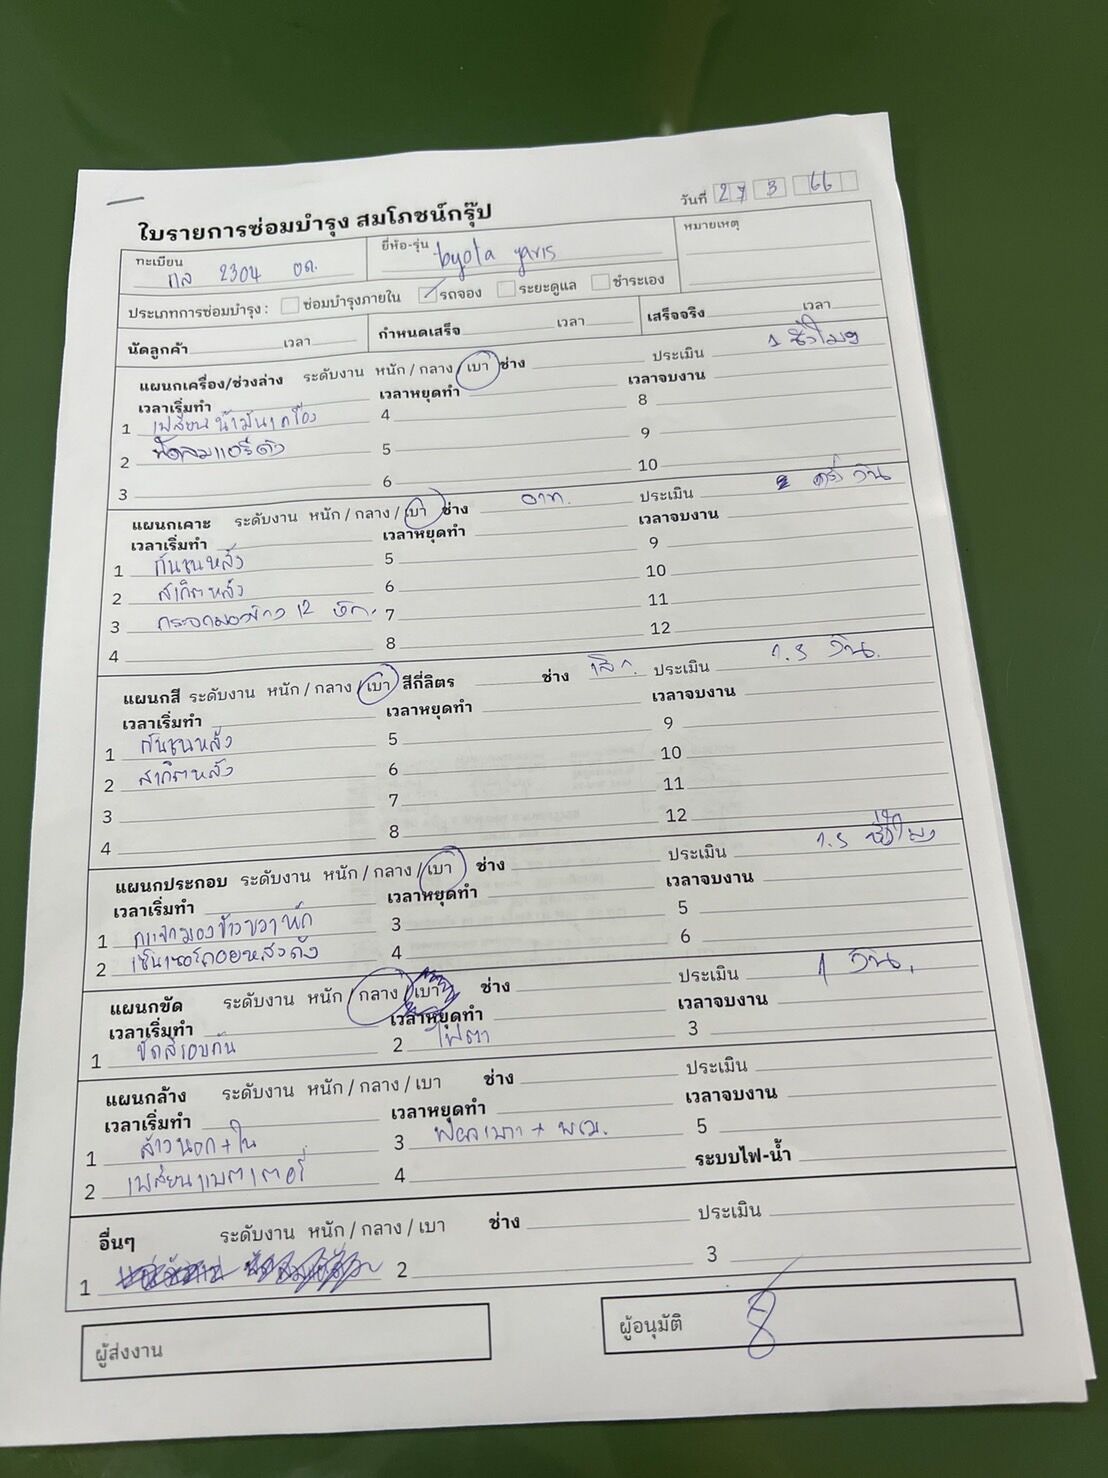 ใบรายการซ่อมบำรุง สมโภชน์กรุ๊ป
วันที่ 27 3 66
ทะเบียน กล 2304 อด.
ยี่ห้อ-รุ่น toyota yaris
หมายเหตุ
ประเภทการซ่อมบำรุง : ซ่อมบำรุงภายใน รถจอง ระยะดูแล ชำระเอง
นัดลูกค้า เวลา กำหนดเสร็จ เวลา เสร็จจริง เวลา
แผนกเครื่อง/ช่วงล่าง ระดับงาน หนัก / กลาง / เบา ช่าง ประเมิน 1 ชั่วโมง
เวลาเริ่มทำ เวลาหยุดทำ เวลาจบงาน
1 เปลี่ยนน้ำมันเครื่อง 4 8
2 พัดลมแอร์ดัง 5 9
3 6 10
แผนกเคาะ ระดับงาน หนัก / กลาง / เบา ช่าง อาท. ประเมิน 2 ครึ่งวัน
เวลาเริ่มทำ เวลาหยุดทำ เวลาจบงาน
1 กันชนหลัง 5 9
2 สเกิตหลัง 6 10
3 กระจกมองข้าง 7 11
4 8 12
แผนกสี ระดับงาน หนัก / กลาง / เบา สีกี่ลิตร ช่าง ประเมิน 1.5 วัน.
เวลาเริ่มทำ เวลาหยุดทำ เวลาจบงาน
1 กันชนหลัง 5 9
2 สเกิตหลัง 6 10
3 7 11
4 8 12
แผนกประกอบ ระดับงาน หนัก / กลาง / เบา ช่าง ประเมิน 1.5 ชั่วโมง
เวลาเริ่มทำ เวลาหยุดทำ เวลาจบงาน
1 กระจกมองข้างขวาหัก 3 5
2 เซ็นเซอร์ถอยหลังดัง 4 6
แผนกขัด ระดับงาน หนัก / กลาง / เบา ช่าง ประเมิน 1 วัน.
เวลาเริ่มทำ เวลาหยุดทำ เวลาจบงาน
1 ขัดสีรอบคัน 2 ไฟตา 3
แผนกล้าง ระดับงาน หนัก / กลาง / เบา ช่าง ประเมิน
เวลาเริ่มทำ เวลาหยุดทำ เวลาจบงาน
1 ล้างนอก + ใน 3 ฟอกเบาะ + พรม. 5
2 เปลี่ยนแบตเตอรี่ 4 ระบบไฟ-น้ำ
อื่นๆ ระดับงาน หนัก / กลาง / เบา ช่าง ประเมิน
1 2 3
ผู้ส่งงาน
ผู้อนุมัติ